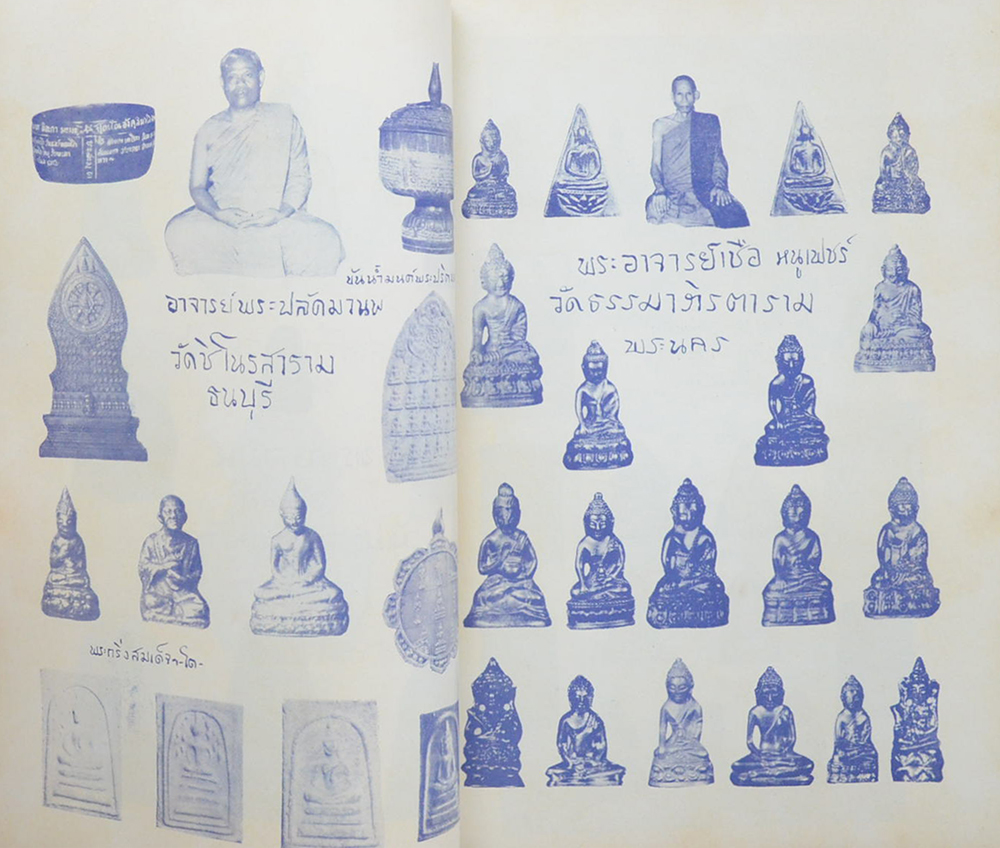 ขันน้ำมนต์พระปริต
อาจารย์พระปลัดมานพ
วัดชิโนรสาราม
ธนบุรี
พระกริ่งสมเด็จฯ-โต-
พระอาจารย์เชื้อ หนูเพชร์
วัดธรรมาภิรตาราม
พระนคร